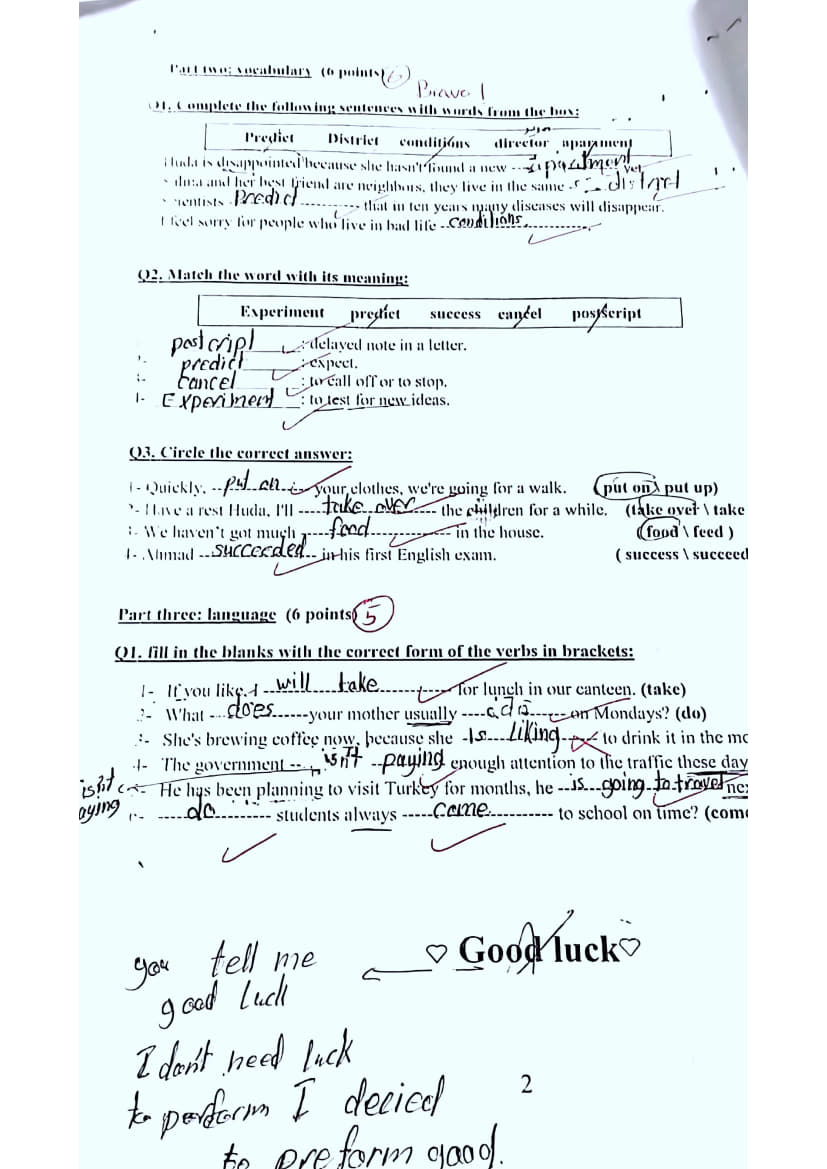 Part two: vocabulary (6 points) 6
Bravo!
Q1. Complete the following sentences with words from the box:
Predict District conditions director apartment
Huda is disappointed because she hasn't found a new --- apartment yet.
and her best friend are neighbors, they live in the same -- district
Scientists Predict -------- that in ten years many diseases will disappear.
I feel sorry for people who live in bad life -- conditions
Q2. Match the word with its meaning:
Experiment predict success cancel postscript
postcript : delayed note in a letter.
predict : expect.
cancel : to call off or to stop.
4- Experiment : to test for new ideas.
Q3. Circle the correct answer:
1- Quickly, -- put on --- your clothes, we're going for a walk. (put on \ put up)
2- Have a rest Huda, I'll ---- take over ---- the children for a while. (take over \ take
3- We haven't got much ---- food -------- in the house. (food \ feed )
4- Ahmad -- succeeded -- in his first English exam. ( success \ succeed
Part three: language (6 points) 5
Q1. fill in the blanks with the correct form of the verbs in brackets:
1- If you like, I -- will take ------ for lunch in our canteen. (take)
2- What -- does ------your mother usually ---- do ---- on Mondays? (do)
3- She's brewing coffee now, because she -Is liking -- to drink it in the mo
4- The government -- isn't -- paying enough attention to the traffic these day
isn't
5- He has been planning to visit Turkey for months, he -- is going to travel nex
aying
6- ----- do --------- students always ----- come ---------- to school on time? (come
♡ Good luck ♡
you tell me
good luck
I don't need luck
to perform I decied
2
to preform good.